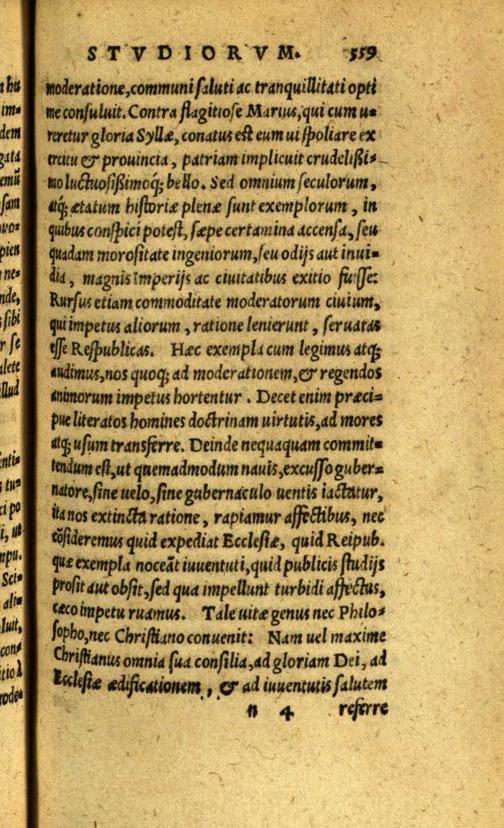 STVDIORVM. 559
moderatione, communi saluti ac tranquillitati opti
me consuluit. Contra flagitiose Marius, qui cum u=
reretur gloria Syllæ, conatus est eum ui spoliare ex
ercitu & prouincia, patriam implicuit crudelißi=
mo luctuosißimoq́; bello. Sed omnium seculorum,
atq́; ætatum historiæ plenæ sunt exemplorum, in
quibus conspici potest, sæpe certamina accensa, seu
quadam morositate ingeniorum, seu odijs aut inui=
dia, magnis imperijs ac ciuitatibus exitio fuisse:
Rursus etiam commoditate moderatorum ciuium,
qui impetus aliorum, ratione lenierunt, seruatas
esse Respublicas. Hæc exempla cum legimus atq́;
audimus, nos quoq́; ad moderationem, & regendos
animorum impetus hortentur. Decet enim præci=
pue literatos homines doctrinam uirtutis, ad mores
atq́; usum transferre. Deinde nequaquam commit=
tendum est, ut quemadmodum nauis, excusso guber=
natore, sine uelo, sine gubernaculo uentis iactatur,
ita nos extincta ratione, rapiamur affectibus, nec
cõsideremus quid expediat Ecclesiæ, quid Reipub.
quæ exempla noceāt iuuentuti, quid publicis studijs
prosit aut obsit, sed qua impellunt turbidi affectus,
cæco impetu ruamus. Tale uitæ genus nec Philo=
sopho, nec Christiano conuenit: Nam uel maxime
Christianus omnia sua consilia, ad gloriam Dei, ad
Ecclesiæ ædificationem, & ad iuuentutis salutem
n 4 referre